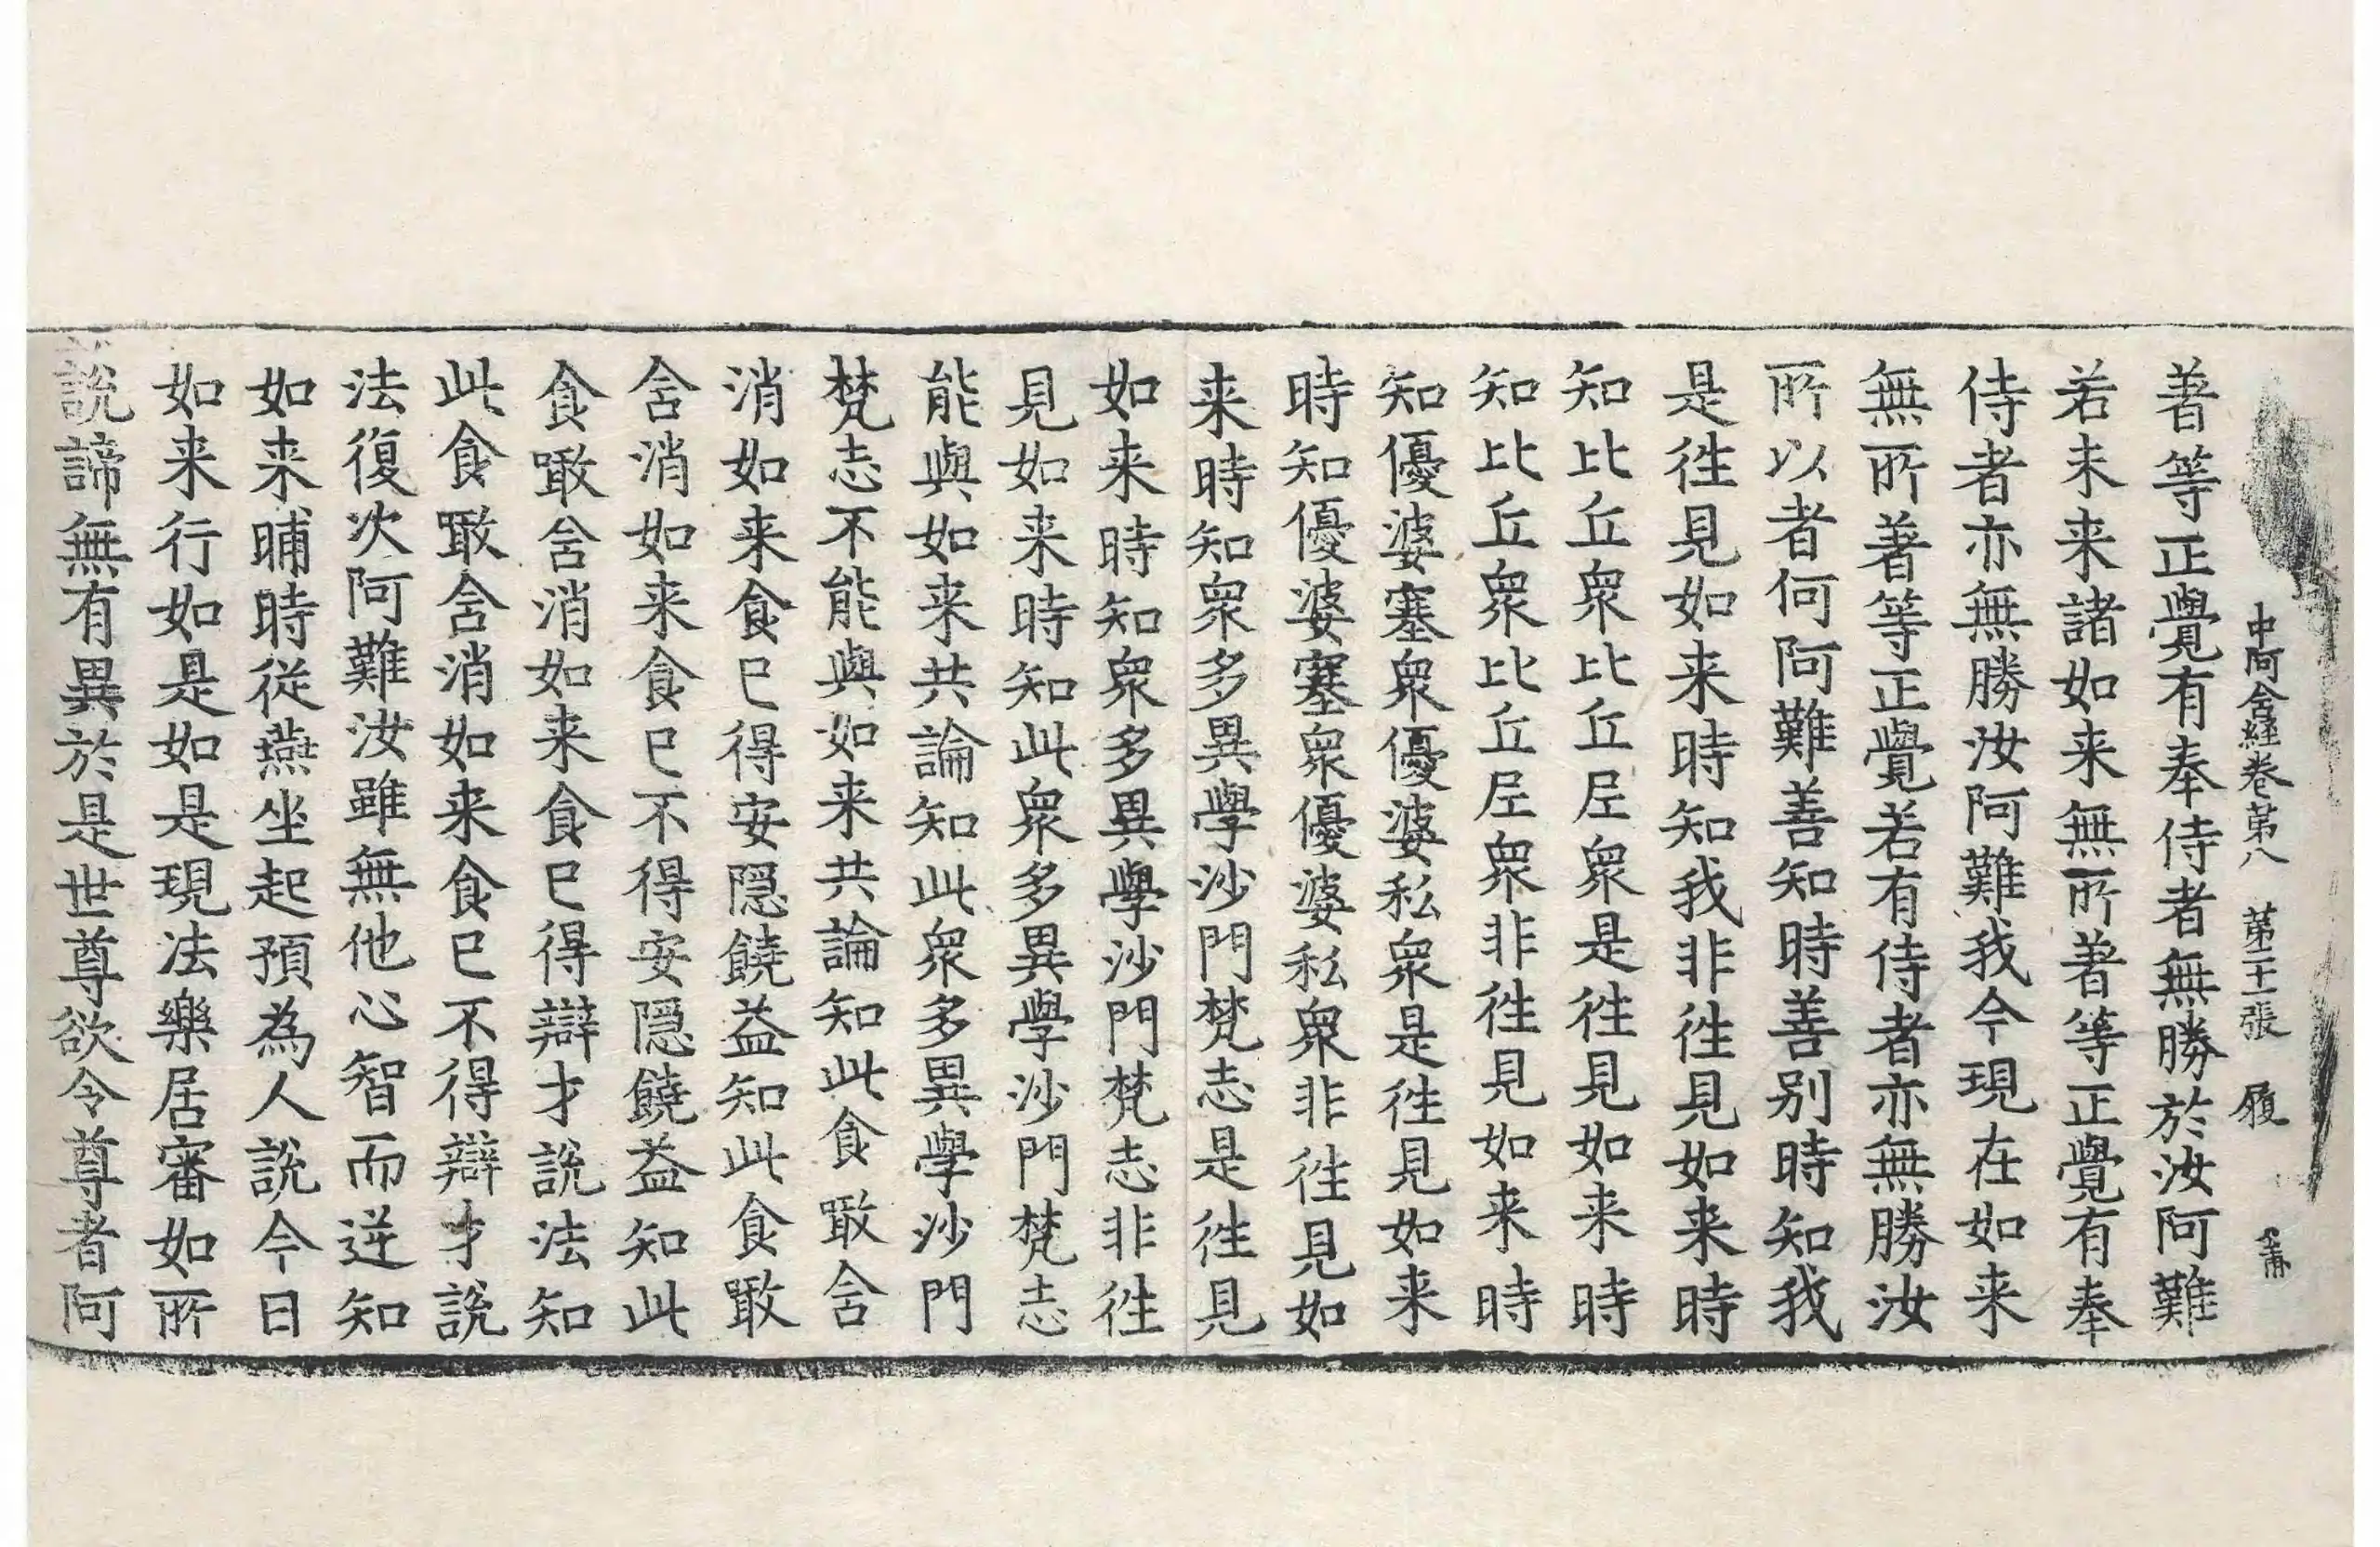 中阿含經卷第八　第二十一張　履
著等正覺有奉侍者無勝於汝阿難
若未来諸如来無所著等正覺有奉
侍者亦無勝汝阿難我今現在如来
無所著等正覺若有侍者亦無勝汝
所以者何阿難善知時善别時知我
是徃見如来時知我非徃見如来時
知比丘衆比丘𡰱衆是徃見如来時
知比丘衆比丘𡰱衆非徃見如来時
知優婆塞衆優婆私衆是徃見如来
時知優婆塞衆優婆私衆非徃見如
来時知衆多異學沙門梵志是徃見
如来時知衆多異學沙門梵志非徃
見如来時知此衆多異學沙門梵志
能與如来共論知此衆多異學沙門
梵志不能與如来共論知此食噉含
消如来食已得安隠饒益知此食噉
含消如来食已不得安隠饒益知此
食噉含消如来食已得辯才說法知
此食噉含消如来食已不得辯才說
法復次阿難汝雖無他心智而逆知
如来晡時従燕坐起預為人說今日
如来行如是如是現法樂居審如所
說諦無有異於是世尊欲令尊者阿